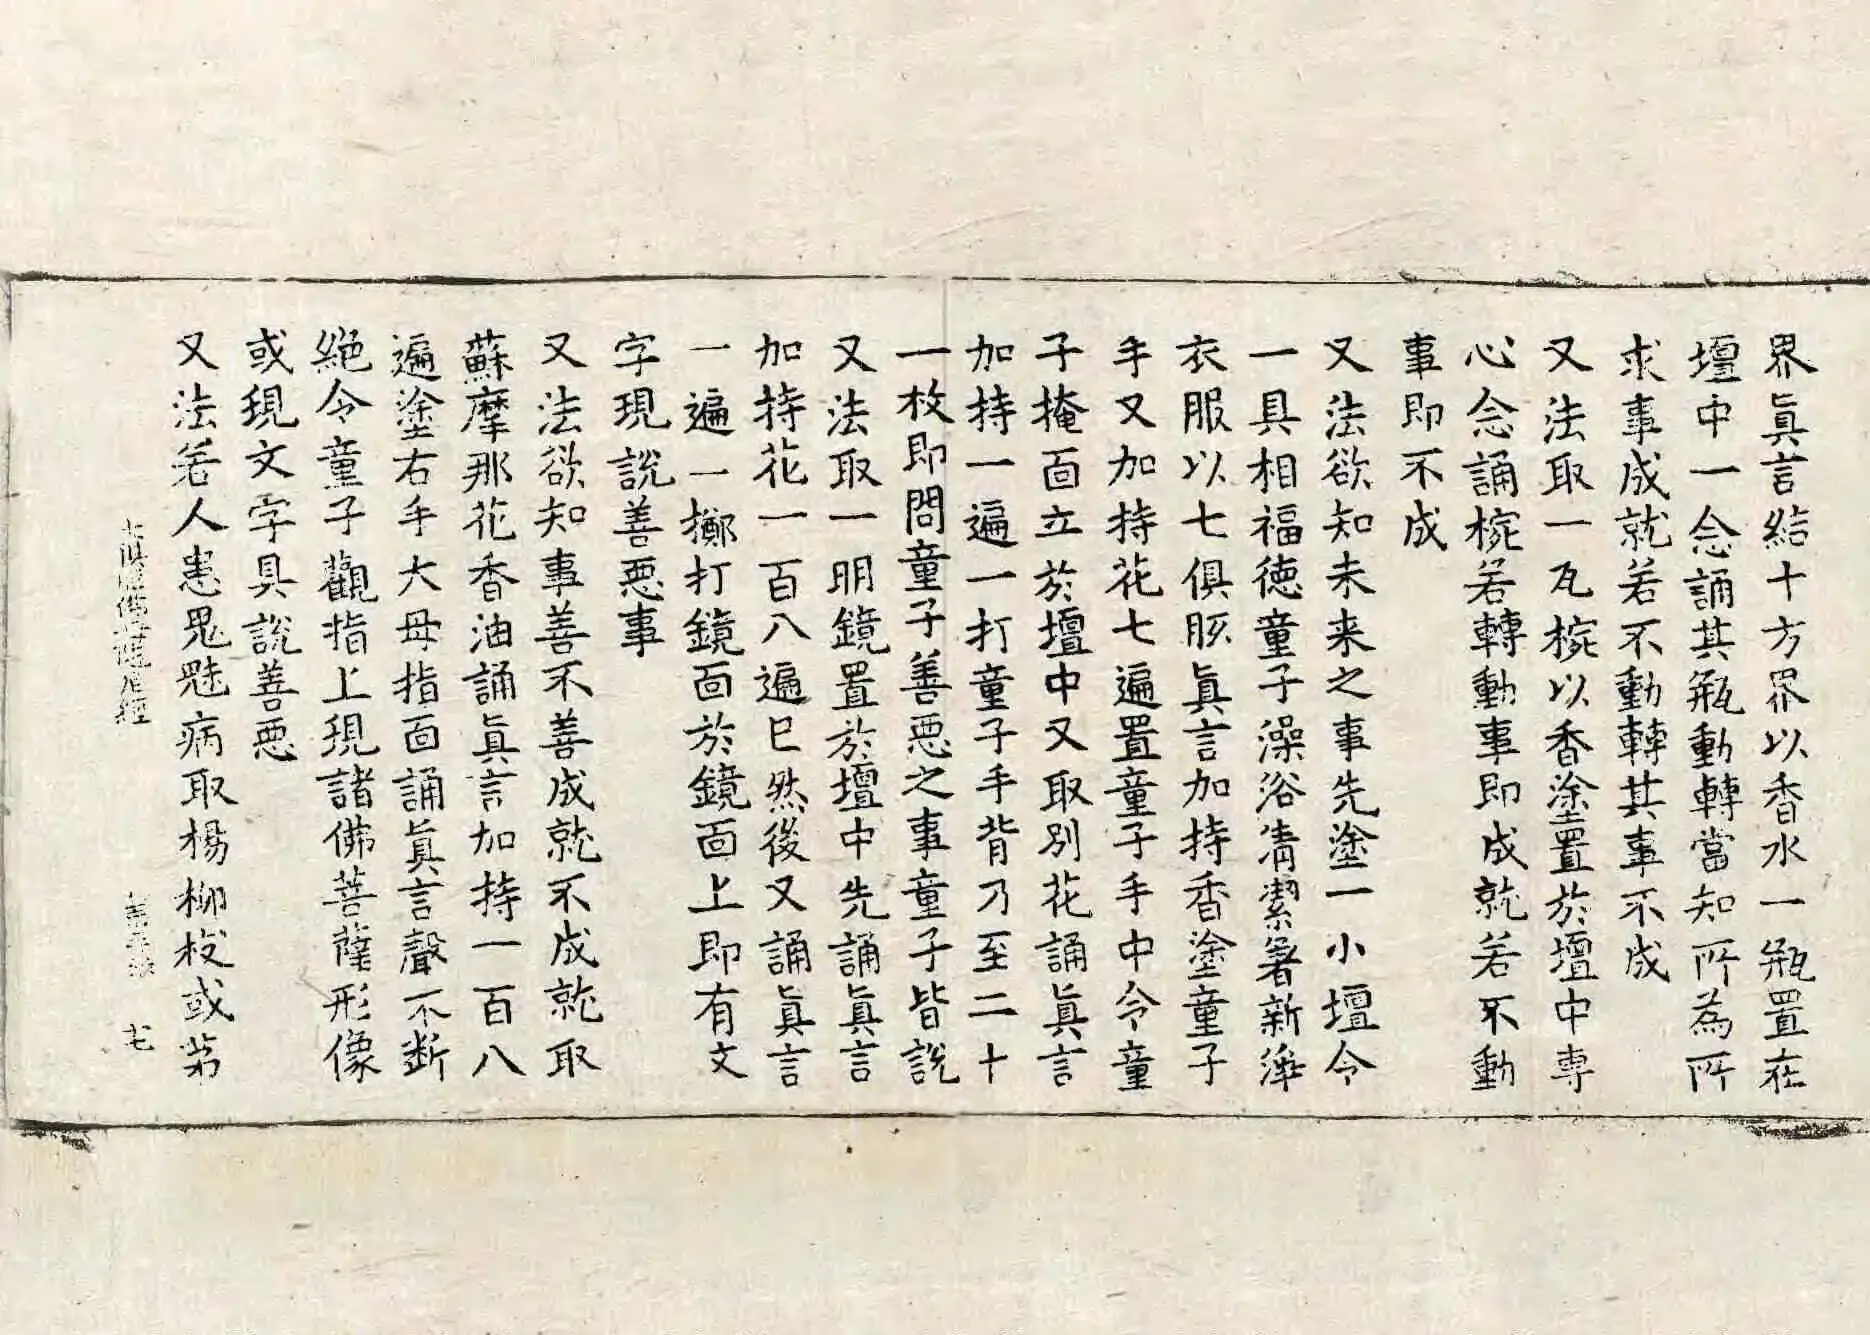 界眞言結十方界以香水一瓶置在
壇中一念誦其瓶動轉當知所為所
求事成就若不動轉其事不成
又法取一瓦椀以香塗置於壇中専
心念誦椀若轉動事即成就若不動
事即不成
又法欲知未来之事先塗一小壇令
一具相福徳童子澡浴清潔著新淨
衣服以七俱胝眞言加持香塗童子
手又加持花七遍置童子手中令童
子掩面立於壇中又取別花誦眞言
加持一遍一打童子手背乃至二十
一枚即問童子善惡之事童子皆說
又法取一明鏡置於壇中先誦眞言
加持花一百八遍已然後又誦眞言
一遍一擲打鏡面於鏡面上即有文
字現說善惡事
又法欲知事善不善成就不成就取
蘇摩那花香油誦眞言加持一百八
遍塗右手大母指面誦眞言聲不断
絕令童子觀指上現諸佛菩薩形像
或現文字具說善惡
又法若人患鬼魅病取楊柳枝或茅
七俱胝佛母陀羅尼經